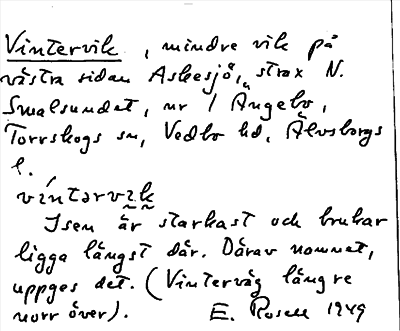 Vintervik, mindre vik på
västra sidan Askesjö, strax N.
Smalsundet, nr 1 Ängebo,
Torrskogs sn, Vedbo hd, Älvsborgs
l.
víntərvik
Isen är starkast och brukar
ligga längst där. Därav namnet,
uppges det. (Vinterväg längre
norr över). E. Rosell 1949